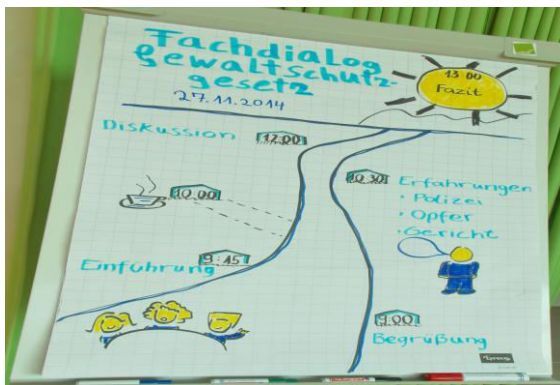 Fachdialog
Gewaltschutz-
gesetz
27.11.2014
13 00
Fazit
Diskussion
12:00
10.00
10 30
Erfahrungen
• Polizei
• Opfer
• Gerichte
9:45
Einführung
9:00
Begrüßung